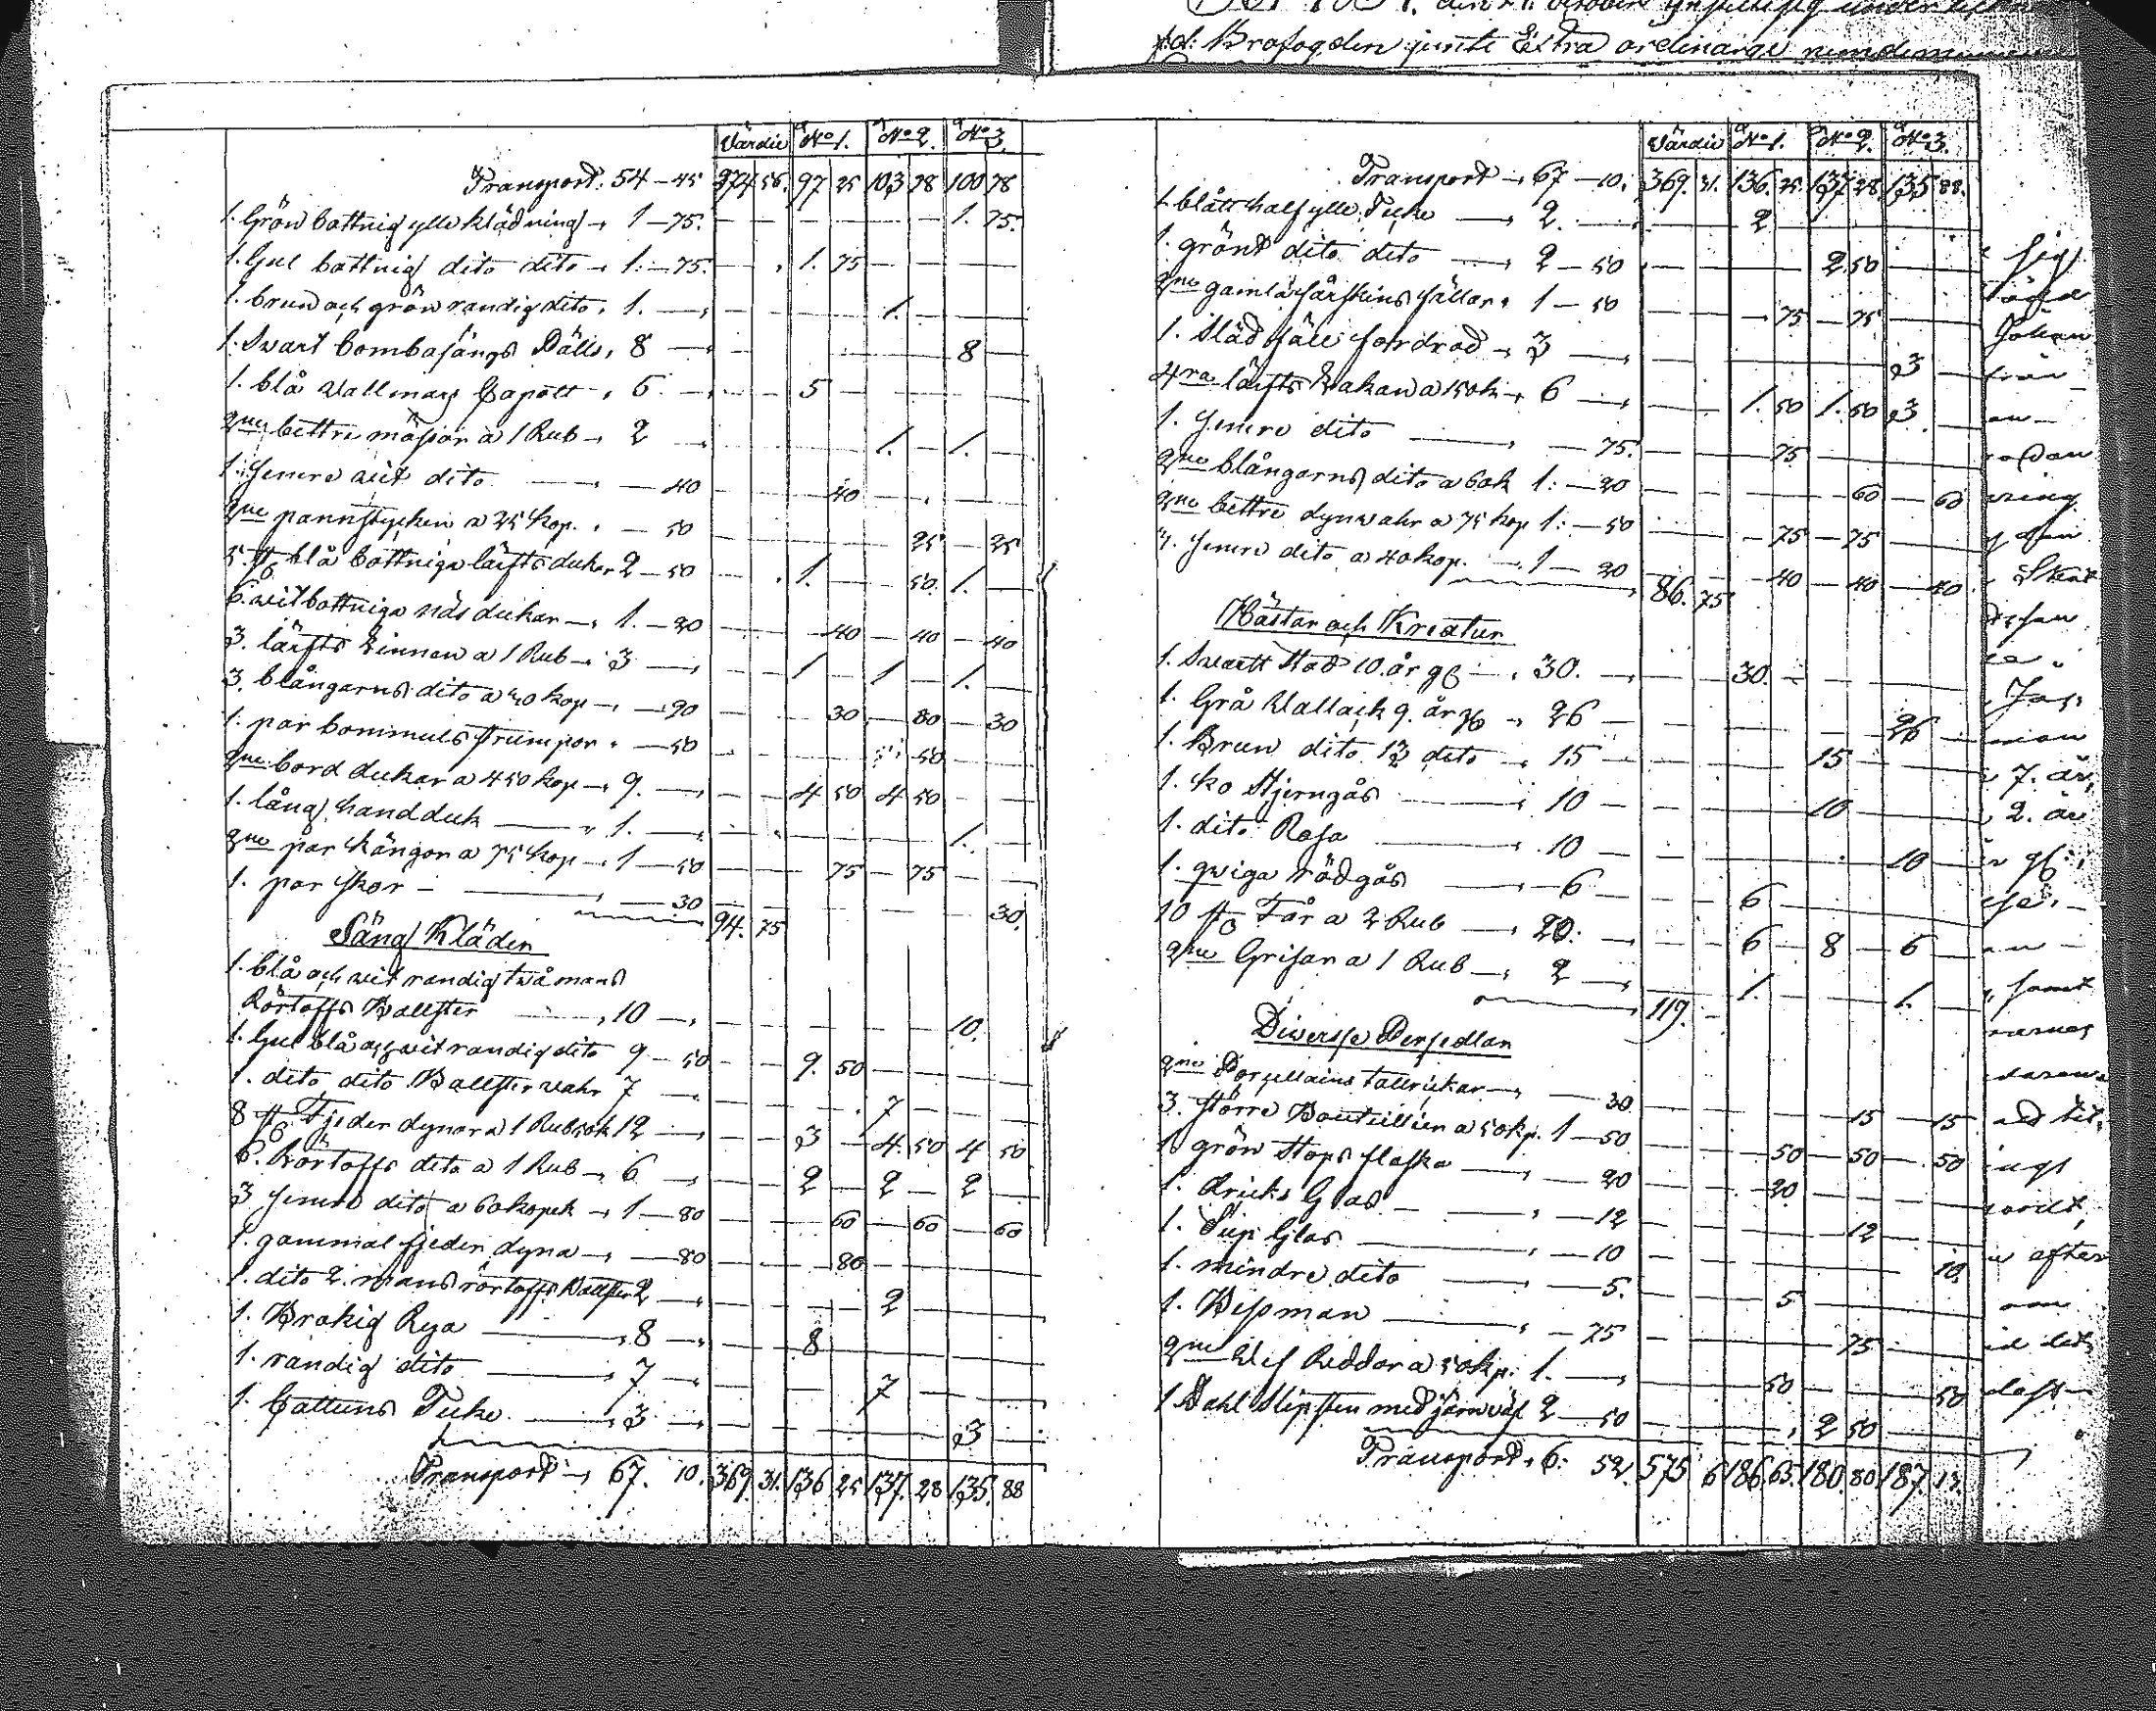 Värdie No 1. No 2. No 3.
Transport. 54 - 45 274 56. 97 25 103 78 100 78
1. Grön bottnig ylle klädning 1 - 75. 1. 75.
1. Gul bottnig dito dito 1. - 75. 1. 75
1. brun och grön randig dito. 1. 1.
1. Swart bombasängs 8 8
1. blå wallmars Capott 5. 5
2ne bettre mössor a 1 Rub 2 1. 1.
1. semre wit dito 40 40
2ne pannstycken a 25 kop. 50 25 25
5. st blå bottniga lärfts dukar 2 - 50 1. 50. 1.
6. witbottniga näsdukar 1. - 20 40 40 40
3. lärfts Linnen a 1 Rub 3 1 1 1.
3. blångarns dito a 30 kop 90 30 30 30
1. par bommuls strumpor 50 50
2ne bord dukar a 4 50 kop 9. 4 50 4 50
1. lång handduk 1. 1.
2ne par kängor a 75 kop 1 - 50 75 75
1. par skor 30 30.
94. 75
Säng Kläder
1. blå och wit randig twåmans
Rörtoffs Bollster 10 10.
1. Gul blå och wit randig dito 9 - 50 9. 50
1. dito dito Bollster wahr 7 7
8 st Fjeder dynor a 1 Rub 50 k 12 3 4. 50 4 50
6. Rörtoffs dito a 1 Rub 6 2 2 2
3 semre dito a 60 kopek 1 - 80 60 60 60
1. gammal fjeder dyna 80 80
1. dito 2. mans rörtoffs Bollster 2 2
1. Brokig Rya 8 8
1. randig dito 7 7
1. Cattuns Täcke 3 3
Transport 67. 10. 369. 31. 136 25 137. 28 135. 88
Värdie No 1. No 2. No 3.
Transport 67 - 10. 369. 31. 136. 25. 137. 28. 135 88.
1 blått half ylle Täcke 2. 2
1. grönt dito dito 2 - 50 2. 50
2ne gamla fårskins fällar 1 - 50 75 75
1. Slädfäll fordrad 3 3
4ra lärfts Lakan a 150 k 6 1. 50 1. 50 3
1. semre dito 75. 75
2ne blångarns dito a 60 k 1: - 20 60 60
2ne bettre dynwahr a 75 kop 1: - 50 75 75
3. semre dito a 40 kop. 1 - 20 40 40 40
86. 75
Hästar och Kreatur
1. Swartt Stod 10. år 30. 30.
1. Grå Wallack 9. år 26 26
1. Brun dito 13 dito 15 15
1. ko Stjerngås 10 10
1. dito Rosa 10 10
1. qwiga rödgås 6 6
10 st Får a 2 Rub 20. 6 8 6
2ne Grisar a 1 Rub 2 1. 1.
119.
Diwersse Persedlar
2ne Porsellains tallrickar 30 15 15
3. större Boutellier a 50 kp. 1 - 50 50 50 50
1 grön Stops flaska 20 20
1. dricks Glas 12 12
1. Sup Glas 10 10.
1. mindre dito 5. 5
1. Bissman 75 75
2ne Wef Reddor a 50 kp. 1. 50 50
1 Dahl Slipsten med järnwäf 2 - 50 2 50
Transport 6. 52. 575 6 186 65. 180. 80 187. 13.